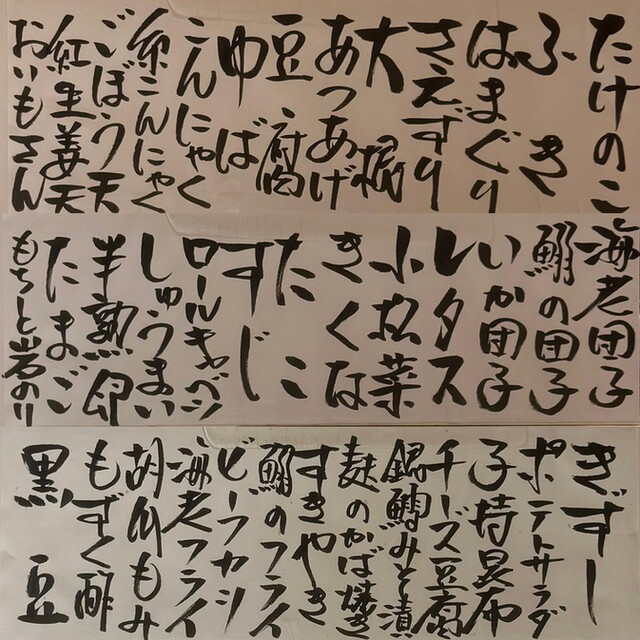 たけのこ
ふき
はまぐり
さえずり
大根
あつあげ
豆腐
ゆば
こんにゃく
糸こんにゃく
ごぼう天
紅生姜天
おいもさん
海老団子
鰯の団子
いか団子
レタス
小松菜
きくな
たこ
すじ
ロールキャベツ
しゅうまい
半熟卵
たまご
もちと岩のり
きずし
ポテトサラダ
子持昆布
チーズ豆腐
銀鱈みそ漬
麩のかば焼き
すきやき
鰯のフライ
ビーフカツ
海老フライ
胡瓜もみ
もずく酢
黒豆